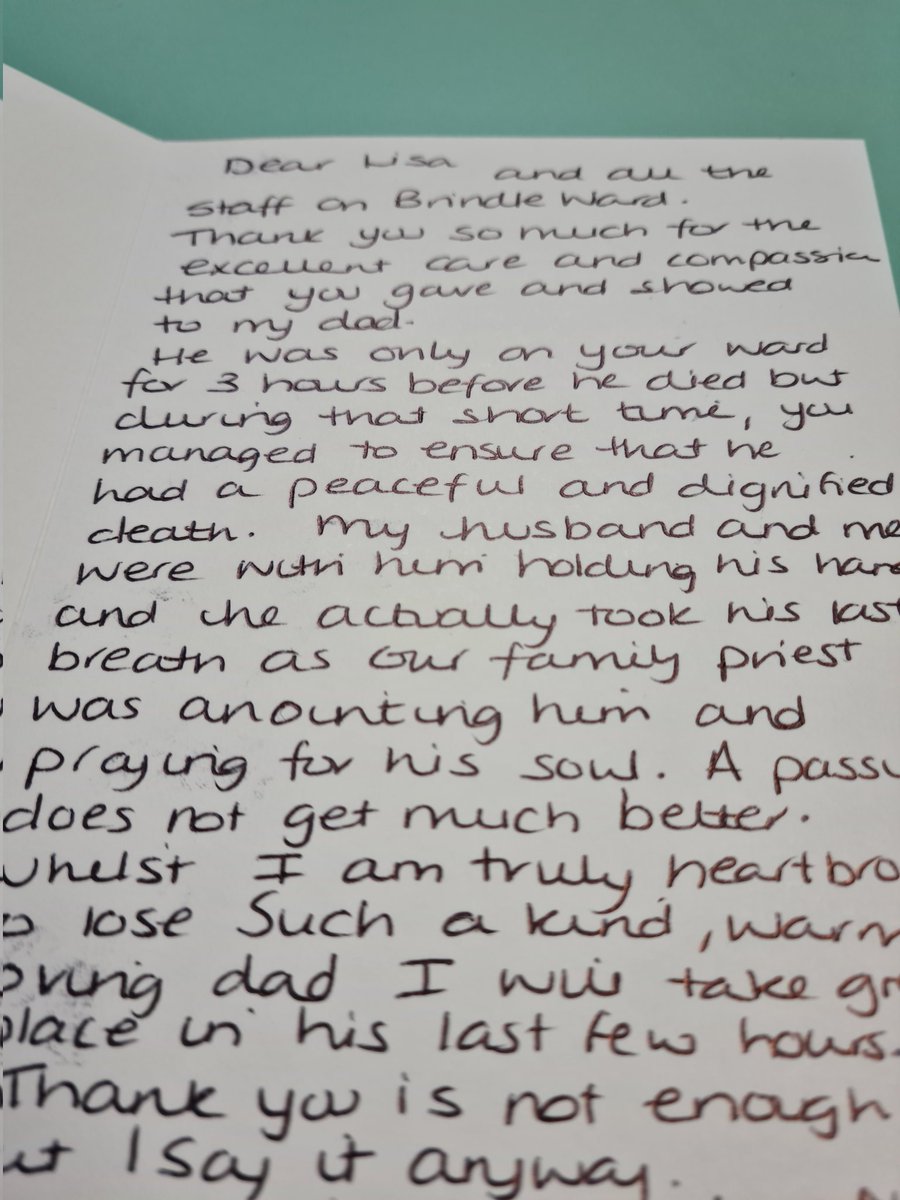 Dear Lisa and all the
staff on Brindle Ward.
Thank you so much for the
excellent care and compassion
that you gave and showed
to my dad.
He was only on your ward
for 3 hours before he died but
during that short time, you
managed to ensure that he
had a peaceful and dignified
death. My husband and me
were with him holding his hand
and he actually took his last
breath as our family priest
was anointing him and
praying for his soul. A pass
does not get much better.
Whilst I am truly heartbro
lose such a kind, warm
oving dad I will take gr
place in his last few hours.
Thank you is not enough
ut I say it anyway.